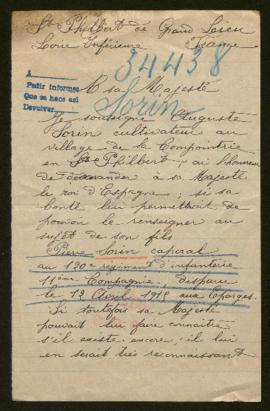 St Philbert de Grand Lieu
Loire Inférieure France
34438
A
Pedir informes
Que se hace así
Devolver
A sa Majesté
Sorin
Je soussigné Auguste
Sorin cultivateur au
village de la Compointrie
en St Philbert, ai l'honneur
de demander à sa Majesté
le roi d'Espagne, si sa
bonté leur permettrait de
pouvoir le renseigner au
sujet de son fils
Pierre Sorin caporal
au 120e régiment d'infanterie
11ème Compagnie, disparu
le 12 Avril 1915 aux Eparges.
Si toutefois sa Majesté
pouvait lui faire connaître
s'il existe encore, il lui
en serait très reconnaissant